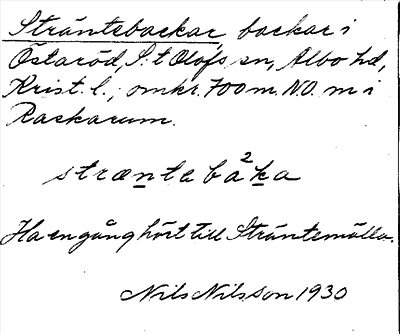 Sträntebackar, backar i
Östaröd, S:t Olofs sn, Albo hd,
Krist. l., omkr. 700 m. N.O. m i
Raskarum.
stræntabà²ka
Ha en gång hört till Sträntemölla.
Nils Nilsson 1930